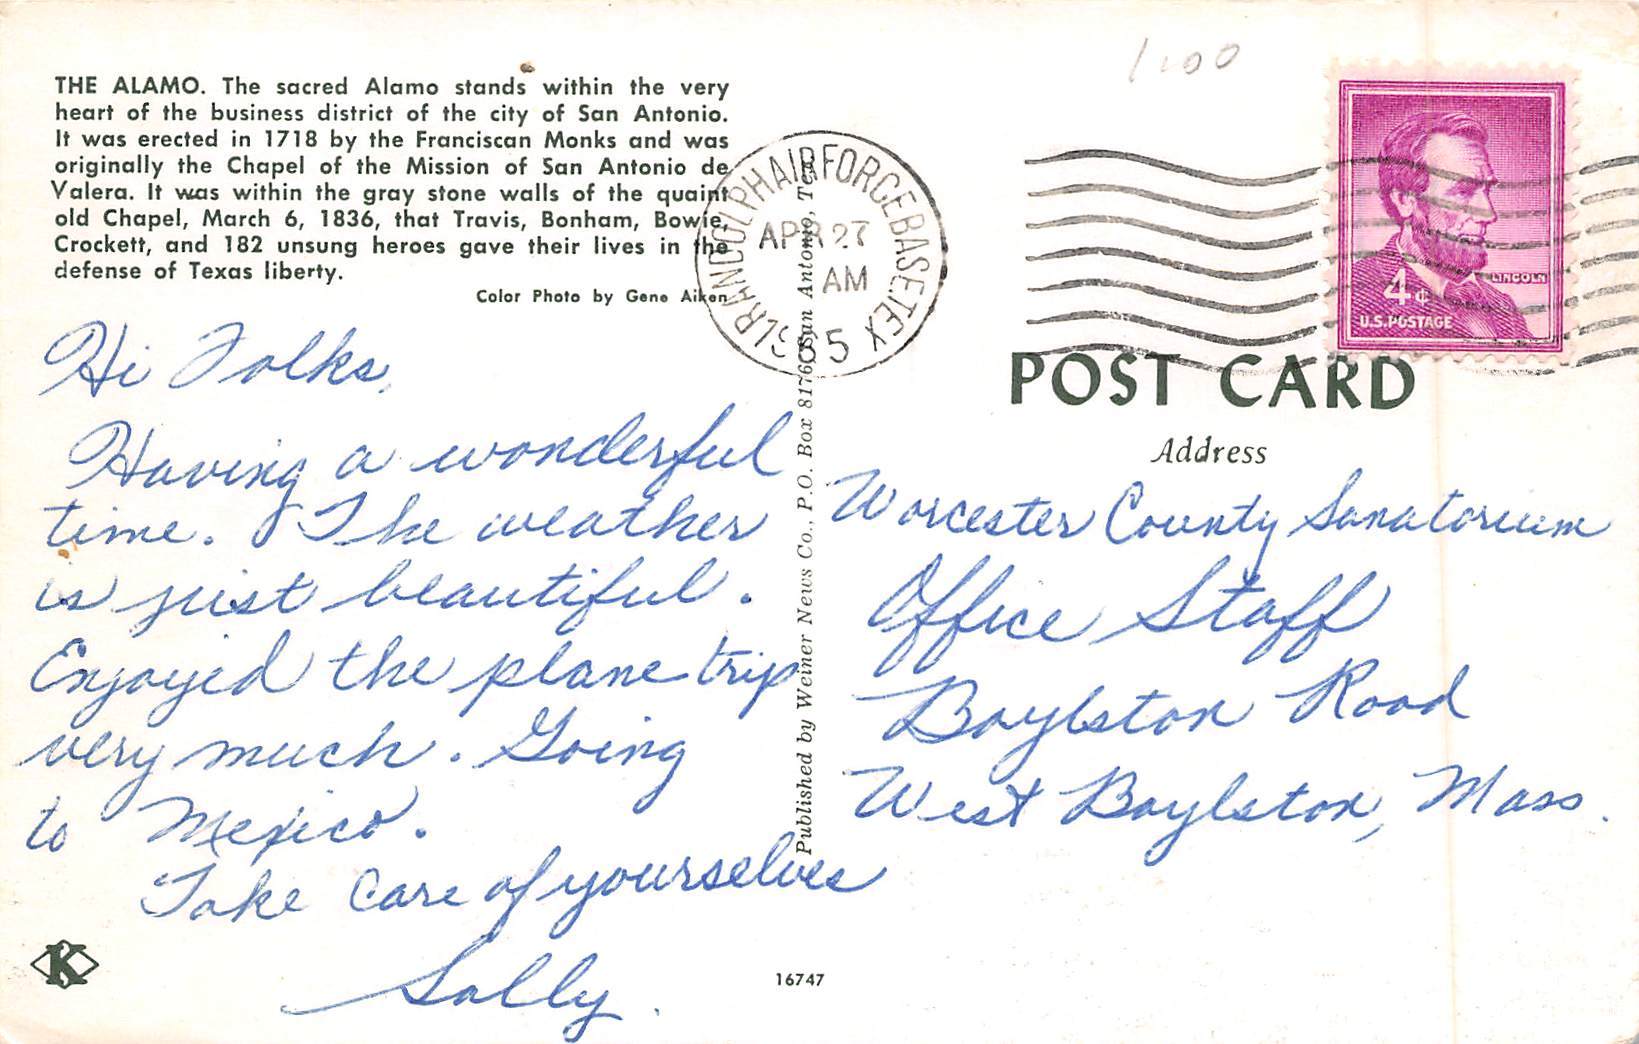 THE ALAMO. The sacred Alamo stands within the very
heart of the business district of the city of San Antonio.
It was erected in 1718 by the Franciscan Monks and was
originally the Chapel of the Mission of San Antonio de
Valera. It was within the gray stone walls of the quaint
old Chapel, March 6, 1836, that Travis, Bonham, Bowie,
Crockett, and 182 unsung heroes gave their lives in the
defense of Texas liberty.
Color Photo by Gene Aiken
Hi Folks,
Having a wonderful
time. The weather
is just beautiful.
Enjoyed the plane trip
very much. Going
to Mexico.
Take Care of yourselves
Sally.
K
16747
Published by Weiner News Co., P.O. Box 8176, San Antonio, Tex.
RANDOLPH AIR FORCE BASE. TEX
APR 27
AM
1.00
LINCOLN
4¢
U.S. POSTAGE
POST CARD
Address
Worcester County Sanatorium
Office Staff
Boylston Road
West Boylston, Mass.